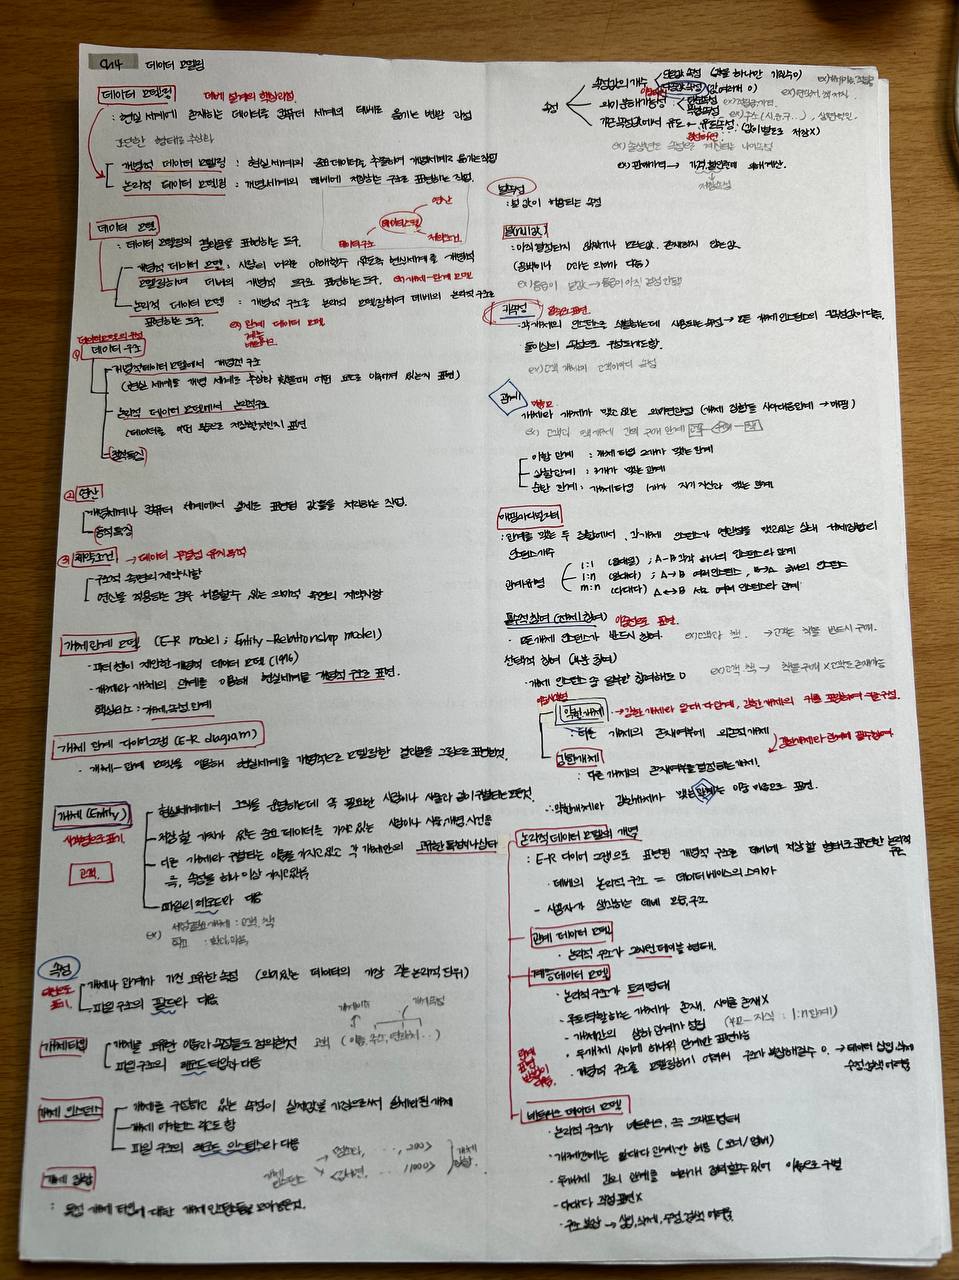 Ch4 데이터 모델링
데이터 모델링 데베 설계의 핵심과정
: 현실 세계에 존재하는 데이터를 컴퓨터 세계의 데베로 옮기는 변환 과정
개념적 데이터 모델링 : 현실 세계의 중요 데이터를 추출하여 개념세계로 옮기는 작업
논리적 데이터 모델링 : 개념세계의 데베에 저장하는 구조로 표현하는 작업.
데이터 모델
: 데이터 모델링의 결과물을 표현하는 도구.
연산
데이터모델
데이터구조 제약조건
개념적 데이터 모델 :
모델링하여 데베의 개념적 구조로 표현하는 도구. ex) 개체-관계 모델
논리적 데이터 모델 : 개념적 구조를 논리적 모델링하여 데베의 논리적 구조로
표현하는 도구. ex) 관계 데이터 모델
① 데이터 구조
개념적 데이터 모델에서 개념적 구조
(현실 세계를 개념 세계로 추상화 했을때 어떤 요소로 이루어져 있는지 표현)
논리적 데이터 모델에서 논리적구조
(데이터를 어떤 모습으로 저장할것인지 표현
정적특징
② 연산
개념세계나 컴퓨터 세계에서 실제로 표현된 값들을 처리하는 작업.
동적특징
③ 제약조건 → 데이터 무결성 유지목적
구조적 측면의 제약사항
연산을 적용하는 경우 허용할수 있는 의미적 측면의 제약사항
개체관계 모델 (E-R model ; Entity-Relationship model)
· 피터 첸이 제안한 개념적 데이터 모델 (1976)
· 개체와 개체의 관계를 이용해 현실세계를 개념적 구조로 표현.
핵심요소 : 개체, 속성, 관계
개체 관계 다이어그램 (E-R diagram)
· 개체-관계 모델을 이용해 현실세계를 개념적으로 모델링한 결과물을 그림으로 표현한것.
개체 (Entity)
사각형으로 표기
고객
현실세계에서 조직을 운영하는데 꼭 필요한 사람이나 사물과 같이 구별되는 모든것.
저장할 가치가 있는 중요 데이터를 가지고 있는 사람이나 사물, 개념, 사건등
다른 개체와 구별되는 이름을 가지고있고 각 개체만의 고유한 특성이나 상태
즉, 속성을 하나 이상 가지고있음
파일의 레코드와 대응
ex) 서점 필요 개체 : 고객, 책
학교 : 학과, 과목
속성
개체나 관계가 가진 고유한 속성 (의미있는 데이터의 가장 작은 논리적 단위)
파일 구조의 필드와 대응
개체타입
개체를 고유한 이름과 속성들로 정의한것 고객 (이름, 주소, 연락처 ..)
파일 구조의 레코드 타입과 대응
개체 인스턴스
개체를 구성하고 있는 속성이 실제값을 가짐으로써 실체화된 개체
개체 어커런스 라고도 함
파일 구조의 레코드 인스턴스와 대응
개체 집합
: 특정 개체 타입에 대한 개체 인스턴스들을 모아놓은것.
속성
속성값의 개수
의미 분해가능성
기존 속성값에서 유도 ← 유도속성 (값이 별도로 저장X)
ex) 판매가격 → 가격, 할인율에 의해 계산.
저장속성
널속성
: 널 값이 허용되는 속성
널(null)값
: 아직 결정되지 않았거나 모르는 값. 존재하지 않는 값.
(공백이나 0과는 의미가 다름)
키속성 밑줄로 표현
: 각 개체의 인스턴스를 식별하는데 사용되는 속성 → 모든 개체 인스턴스의 키 속성값이 다름.
둘이상의 속성으로 구성되기도함.
ex) 고객 개체의 고객아이디 속성
관계
마름모
개체와 개체가 맺고있는 의미있는 연관성 (개체 집합들 사이 대응관계 → 매핑)
ex) 고객과 책 개체 간의 구매 관계 고객 구매 책
이항 관계 : 개체 타입 2개가 맺는 관계
삼항 관계 : 3개가 맺는 관계
순환 관계 : 개체타입 1개가 자기 자신과 맺는 관계
매핑카디널리티
: 관계를 맺는 두 집합에서, 각 개체 인스턴스가 연관성을 맺고있는 상대 개체집합의
인스턴스개수
관계유형
1:1 (일대일) ; A-B 각각 하나의 인스턴스와 관계
1:n (일대다) ; A→B 여러 인스턴스, B→A 하나의 인스턴스
m:n (다대다) A↔B 서로 여러 인스턴스와 관계
필수적 참여 (전체 참여) 이중선으로 표현.
· 모든 개체 인스턴스가 반드시 참여. ex) 고객과 책. → 고객은 책을 반드시 구매.
선택적 참여 (부분 참여)
· 개체 인스턴스 중 일부만 참여해도 O
약한개체 → 강한 개체와 일대 다 관계, 강한 개체의 키를 포함하여 키를 구성.
: 다른 개체의 존재여부에 의존적 개체
강한개체
: 다른 개체의 존재여부를 결정하는 개체.
· 약한개체와 강한개체가 맺는 관계는 이중 마름모로 표현.
논리적 데이터 모델의 개념
: E-R 다이어그램으로 표현된 개념적 구조를 데베에 저장할 형태로 표현한 논리적 구조
· 데베의 논리적 구조 = 데이터베이스의 스키마
- 사용자가 생각하는 데베 모습, 구조
관계 데이터 모델
· 논리적 구조가 2차원 테이블 형태.
계층 데이터 모델
· 논리적 구조가 트리 형태
· 루트역할하는 개체가 존재. 사이클 존재X
· 개체간의 상하 관계가 성립 (부모-자식 : 1:n관계)
· 두개체 사이에 하나의 관계만 표현가능
· 개념적 구조를 모델링하기 어려워 구조가 복잡해질수 O. → 데이터 삽입, 삭제
수정, 검색 어려움
네트워크 데이터 모델
· 논리적 구조가 네트워크, 즉 그래프형태
· 개체간에는 일대다 관계만 허용 (오너/멤버)
· 두개체 간의 관계를 여러개 정의할수 있어 이름으로 구별
- 다대다 직접 표현X
· 구조 복잡 → 삽입, 삭제, 수정, 검색 어려움.